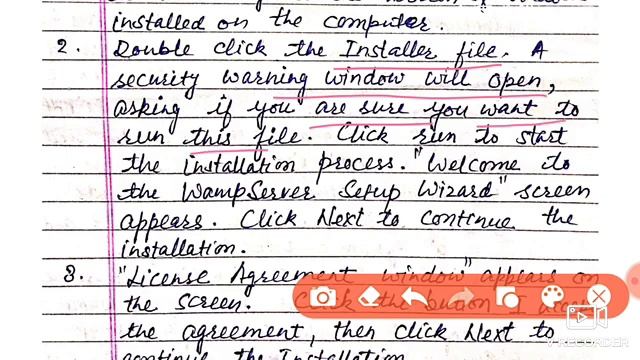 installed on the computer.
2. Double click the Installer file. A
security warning window will open,
asking if you are sure you want to
run this file. Click run to start
the installation process. "Welcome to
the WampServer Setup Wizard" screen
appears. Click Next to continue the
installation.
3. "License Agreement window" appears on
the screen. Click the button I accept
the agreement, then click Next to
continue the Installation
V RECORDER